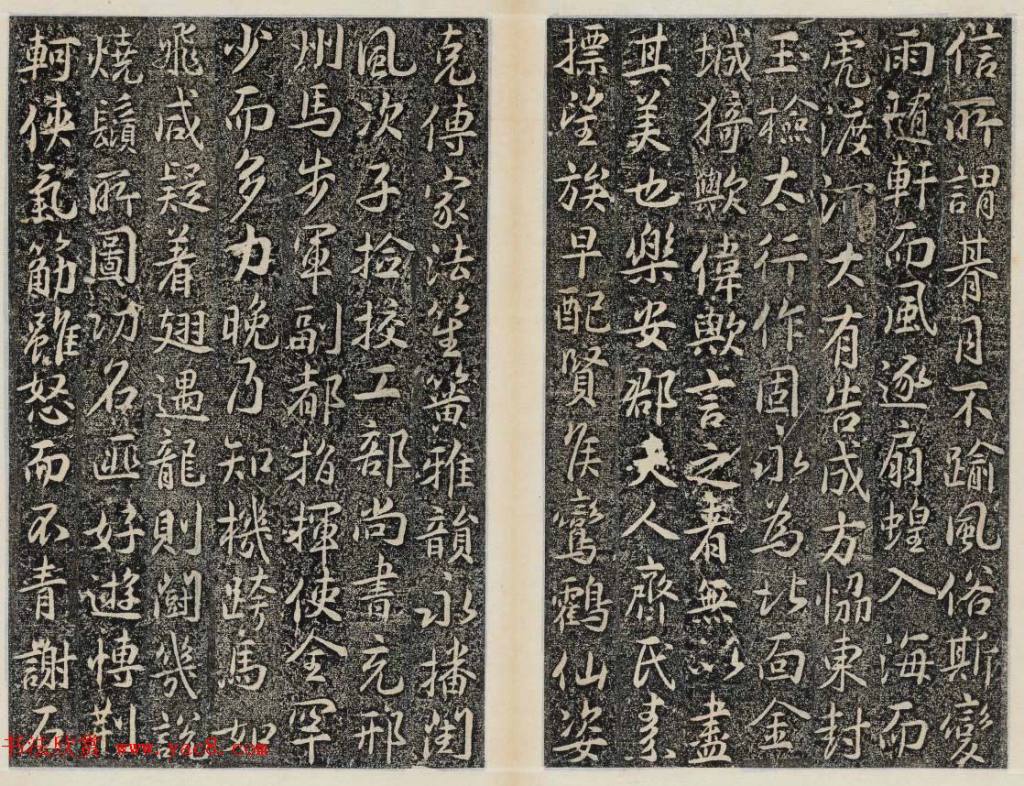 信所謂朞月不踰風俗斯變
雨隨軒而風逐扇蝗入海而
虎渡河大有告成方恊東封
玉檢太行作固永為北面金
城猗歟偉歟言之者無以盡
其美也樂安郡夫人齊氏素
摽望族早配賢侯鸞鸖仙姿
克傳家法笙簧雅韻永播閨
風次子捡挍工部尚書充邢
州馬步軍副都指揮使全罕
少而多力晚乃知機跨馬如
飛咸疑着翅遇龍則鬬幾說
燒鬚所圖功名匪好遊博荆
軻俠氣筋雖怒而不青謝
书法欣赏 www.yac8.com